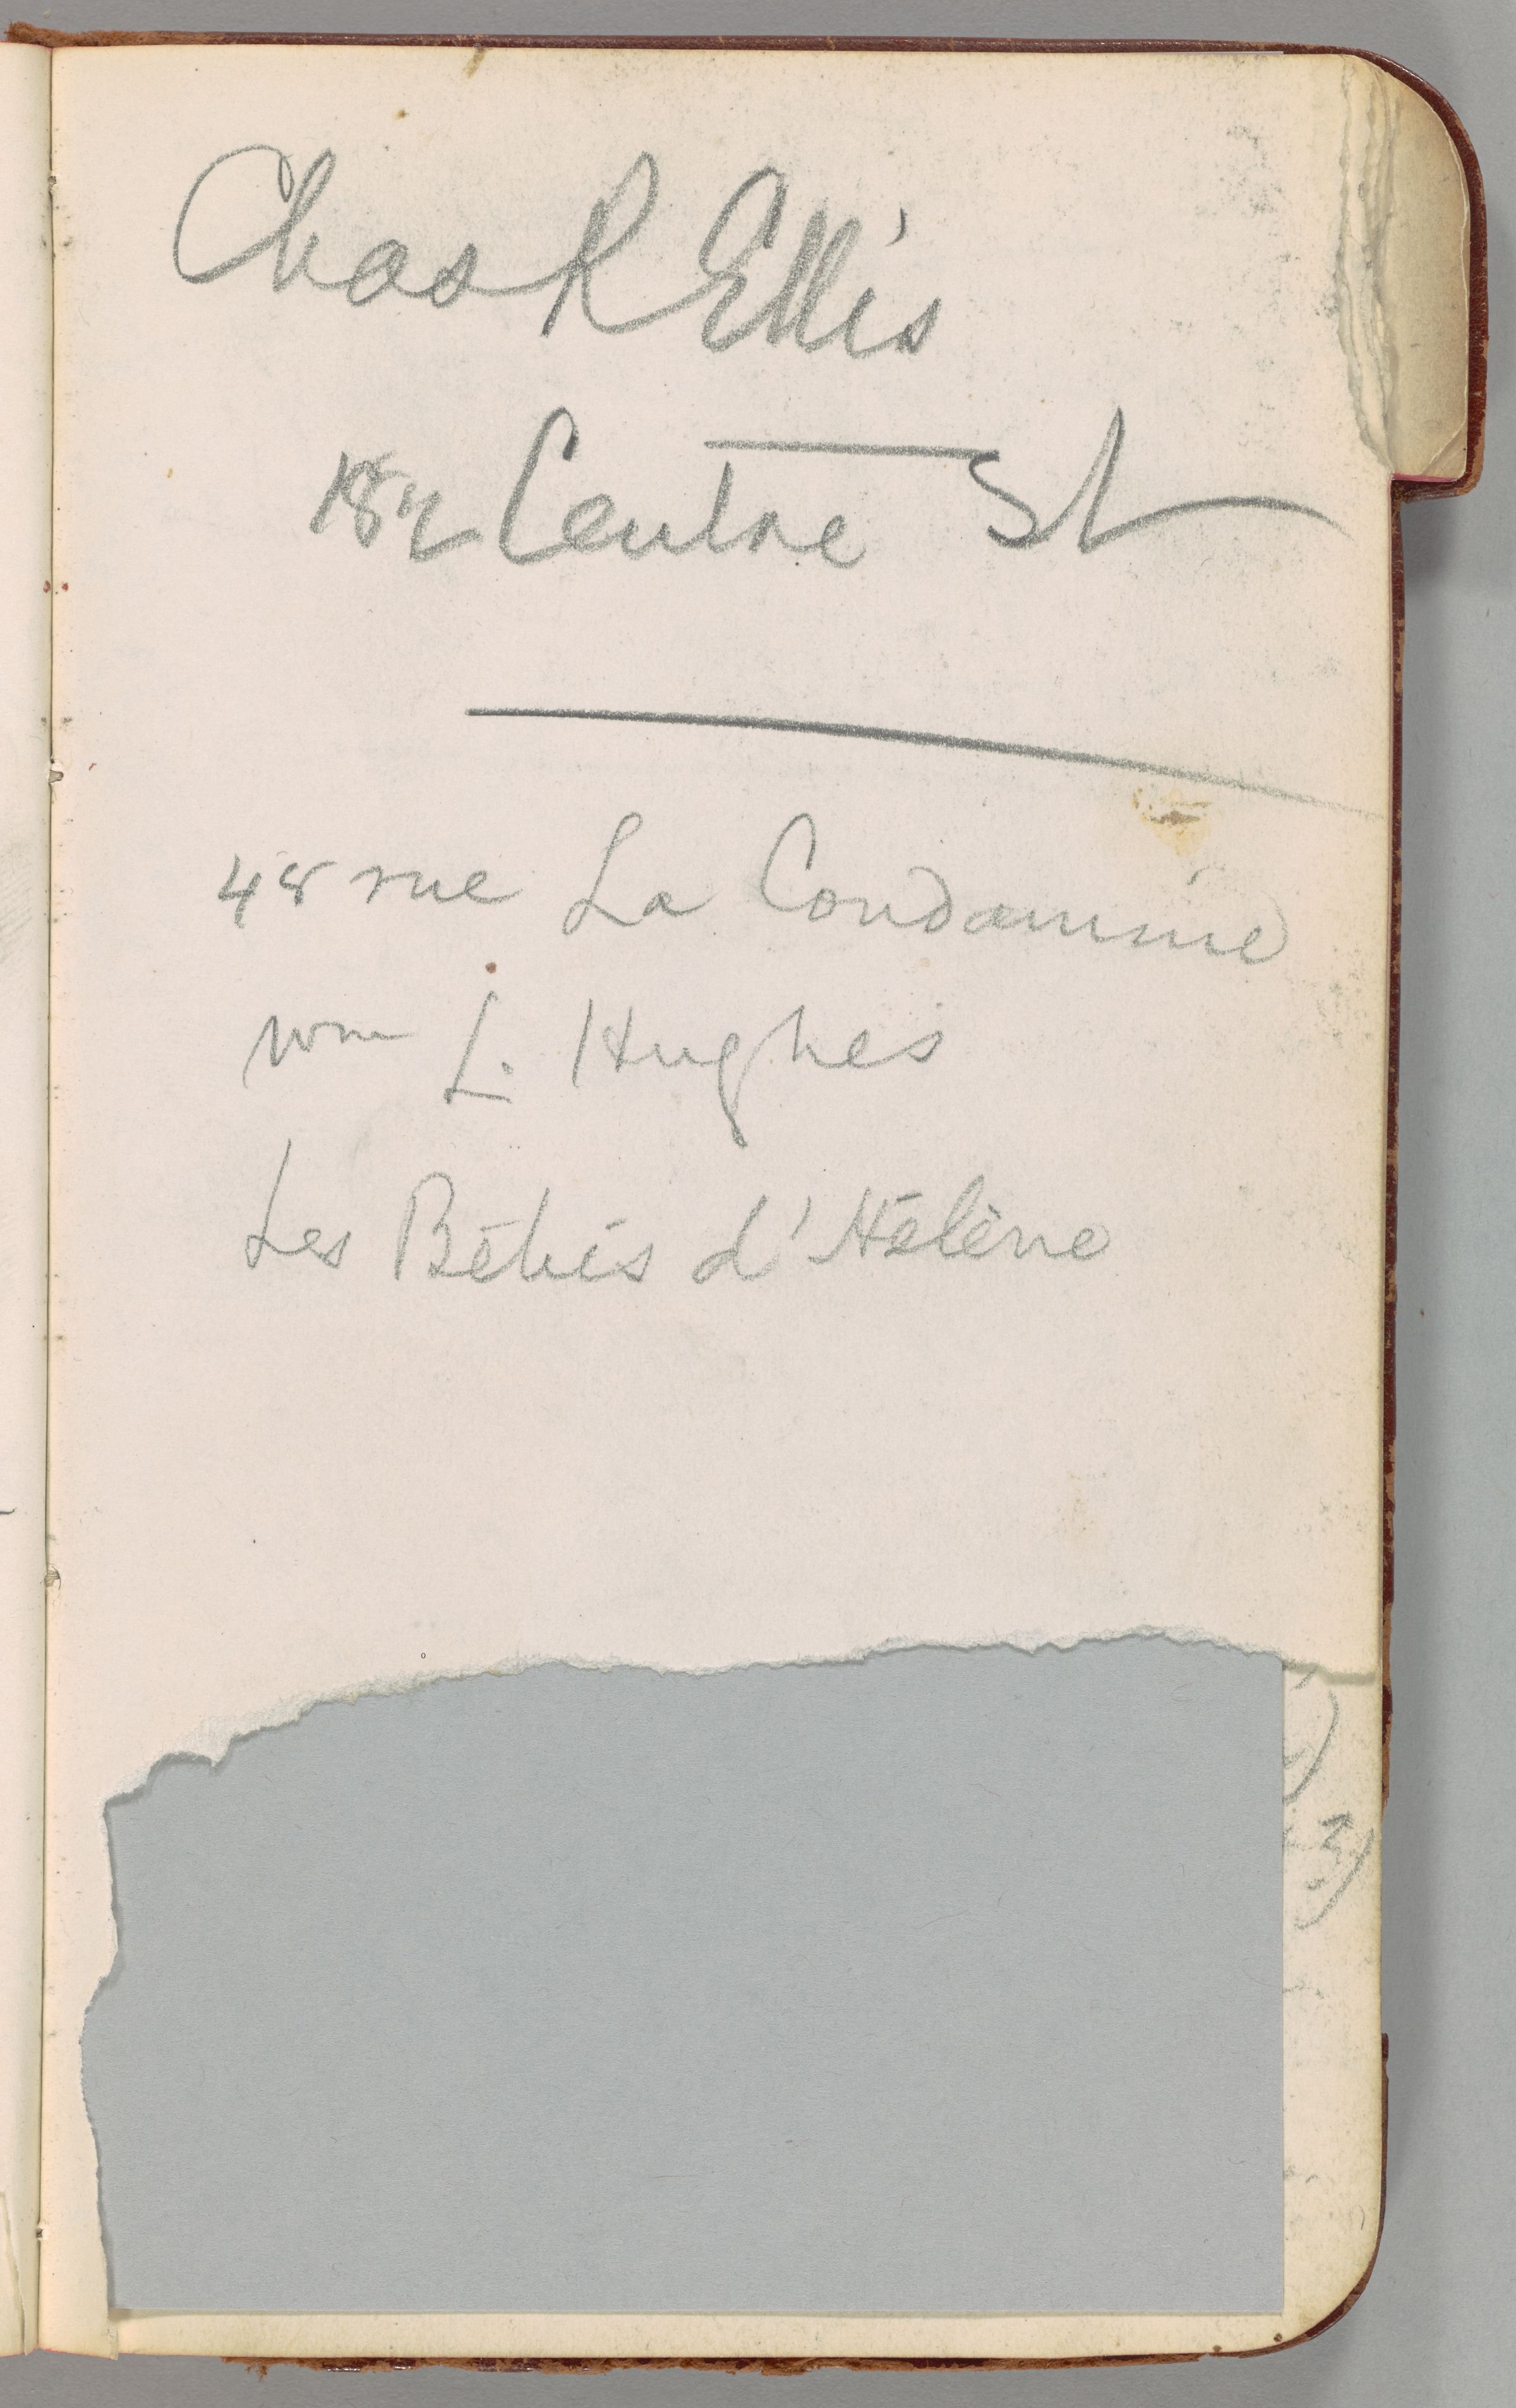 Chas R Ellis
182 Centre St
48 rue La Condamine
Wm L. Hughes
Les Bébés d'Hélène
3)